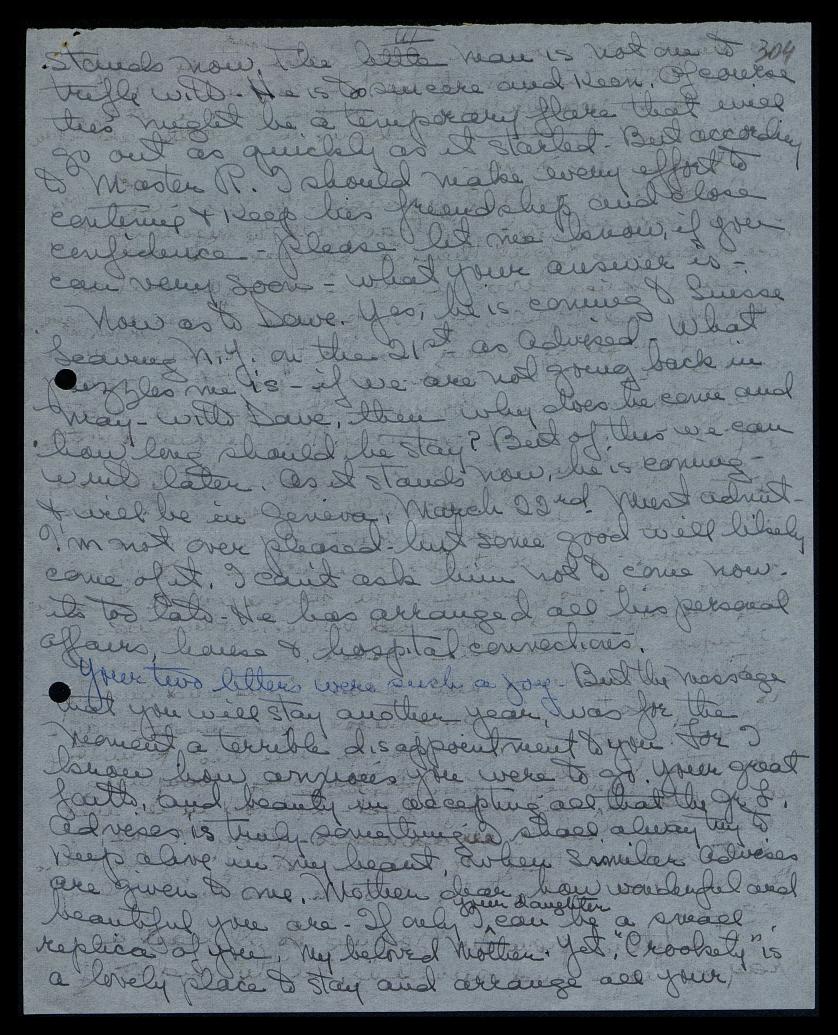 III
304
stands now, the little man is not one to
trifle with. He is too sincere and keen. Of course
this might be a temporary flare that will
go out as quickly as it started. But according
to Master R. I should make every effort to
continue & keep his friendship and close
confidence - please let me know, if you
can very soon - what your answer is -
Now as to Dave. Yes, he is coming to Suisse
leaving N.Y. on the 21st - as advised - What
puzzles me is - if we are not going back in
May - with Dave, then why does he come and
how long should he stay? But of this we can
write later. As it stands now, he is coming -
& will be in Geneva, March 22rd. Must admit -
I'm not over pleased - but some good will likely
come of it. I can't ask him not to come now -
its too late - He has arranged all his personal
affairs, house & hospital connections.
Your two letters were such a joy. But the message
that you will stay another year, was for the
moment a terrible disappointment to you. For I
know how anxious you were to go. Your great
faith, and beauty in accepting all that the Gr. L.
advises is truly something I shall alway try to
keep alive in my heart, when similar advices
are given to me. Mother dear, how wonderful and
beautiful you are - If only I your daughter can be a small
replica of you, my beloved Mother. Yet, "Crookety" is
a lovely place to stay and arrange all your